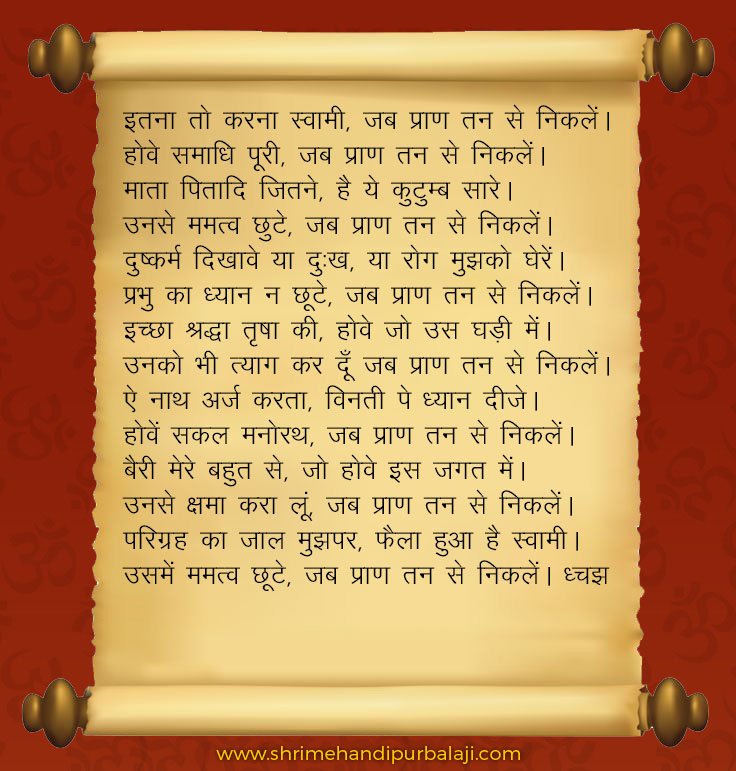 इतना तो करना स्वामी, जब प्राण तन से निकलें।
होवे समाधि पूरी, जब प्राण तन से निकलें।
माता पितादि जितने, है ये कुटुम्ब सारे।
उनसे ममत्व छुटे, जब प्राण तन से निकलें।
दुष्कर्म दिखावे या दुःख, या रोग मुझको घेरें।
प्रभु का ध्यान न छूटे, जब प्राण तन से निकलें।
इच्छा श्रद्धा तृषा की, होवे जो उस घड़ी में।
उनको भी त्याग कर दूँ जब प्राण तन से निकलें।
ऐ नाथ अर्ज करता, विनती पे ध्यान दीजे।
होवें सकल मनोरथ, जब प्राण तन से निकलें।
बैरी मेरे बहुत से, जो होवे इस जगत में।
उनसे क्षमा करा लूं, जब प्राण तन से निकलें।
परिग्रह का जाल मुझपर, फैला हुआ है स्वामी।
उसमें ममत्व छूटे, जब प्राण तन से निकलें। ध्चझ
www.shrimehandipurbalaji.com